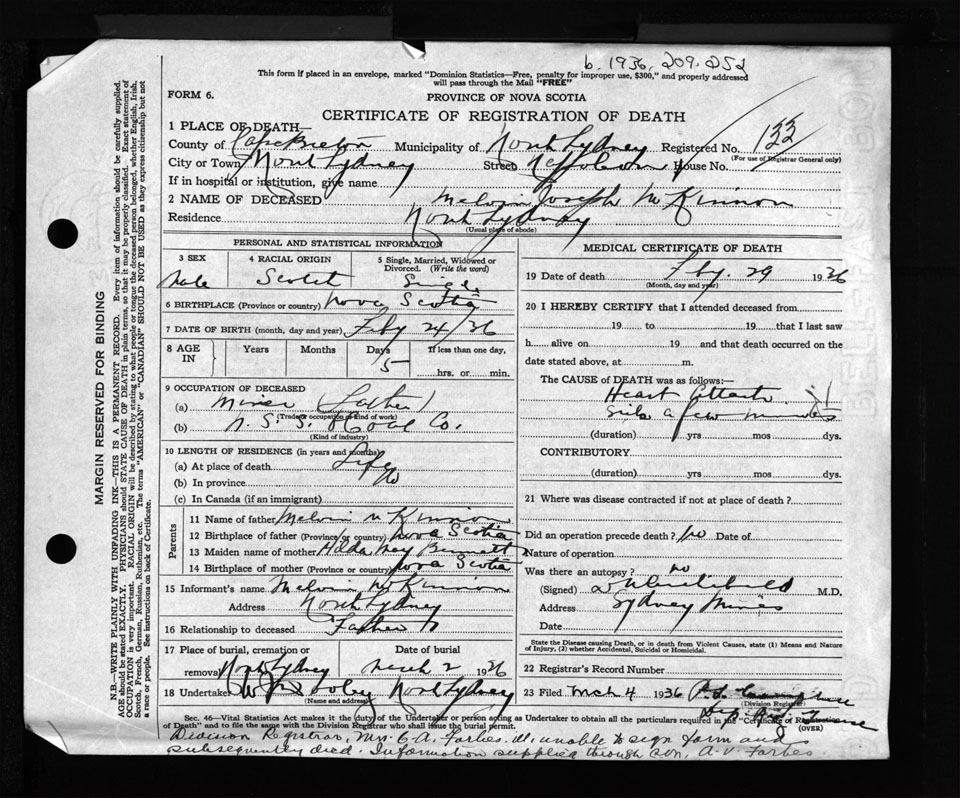 b. 1936, 209, 252
This form if placed in an envelope, marked "Dominion Statistics—Free, penalty for improper use, $300," and properly addressed
will pass through the Mail "FREE"
FORM 6.
PROVINCE OF NOVA SCOTIA
CERTIFICATE OF REGISTRATION OF DEATH
1 PLACE OF DEATH—
County of Cape Breton Municipality of North Sydney Registered No. 133
(For use of Registrar General only)
City or Town North Sydney Street House No.
If in hospital or institution, give name
2 NAME OF DECEASED Melvin Joseph McKinnon
Residence North Sydney
(Usual place of abode)
PERSONAL AND STATISTICAL INFORMATION
3 SEX Male
4 RACIAL ORIGIN Scotch
5 Single, Married, Widowed or Divorced. (Write the word) Single
6 BIRTHPLACE (Province or country) Nova Scotia
7 DATE OF BIRTH (month, day and year) Feby 24/36
8 AGE IN Years Months Days 5 If less than one day, hrs. or min.
9 OCCUPATION OF DECEASED
(a) Miner (Father)
(Trade, occupation or kind of work)
(b) N. S. S. & Coal Co.
(Kind of industry)
10 LENGTH OF RESIDENCE (in years and months)
(a) At place of death Life
(b) In province Do
(c) In Canada (if an immigrant)
Parents
11 Name of father Melvin McKinnon
12 Birthplace of father (Province or country) Nova Scotia
13 Maiden name of mother Hilda May Bennett
14 Birthplace of mother (Province or country) Nova Scotia
15 Informant's name Melvin McKinnon
Address North Sydney
16 Relationship to deceased Father
17 Place of burial, cremation or removal North Sydney Date of burial March 2 1936
18 Undertaker North Sydney
(Name and address)
MEDICAL CERTIFICATE OF DEATH
19 Date of death Feby. 29 1936
(Month, day and year)
20 I HEREBY CERTIFY that I attended deceased from
19 to 19 that I last saw
h alive on 19 and that death occurred on the
date stated above, at m.
The CAUSE of DEATH was as follows:—
Heart Attack
Sick a few minutes
(duration) yrs mos dys.
CONTRIBUTORY
(duration) yrs mos dys.
21 Where was disease contracted if not at place of death?
Did an operation precede death? No Date of
Nature of operation
Was there an autopsy? no
(Signed) M.D.
Address Sydney Mines
Date
State the Disease causing Death, or in death from Violent Causes, state (1) Means and Nature of Injury, (2) whether Accidental, Suicidal or Homicidal.
22 Registrar's Record Number
23 Filed Mch 4 1936
(Division Registrar)
(OVER)
Sec. 46—Vital Statistics Act makes it the duty of the Undertaker or person acting as Undertaker to obtain all the particulars required in the "Certificate of Registration
of Death" and to file the same with the Division Registrar who shall issue the burial permit.
Division Registrar, Mrs. C. A. Forbes, ill, unable to sign form and
subsequently died. Information supplied through son, A. V. Forbes.
MARGIN RESERVED FOR BINDING
N.B.—WRITE PLAINLY WITH UNFADING INK—THIS IS A PERMANENT RECORD. Every item of information should be carefully supplied.
AGE should be stated EXACTLY. PHYSICIANS should STATE CAUSE OF DEATH in plain terms, so that it may be properly classified. Exact statement of
OCCUPATION is very important. RACIAL ORIGIN will be described by stating to what people or tongue the deceased person belonged, whether English, Irish,
Scotch, French, German, Russian, Ruthenian, etc. The terms "AMERICAN" or "CANADIAN" SHOULD NOT BE USED as they express citizenship but not
a race or people. See instructions on back of Certificate.